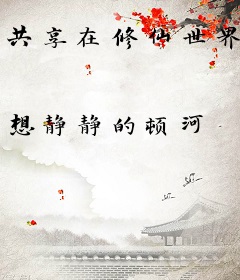 共享在修仙世界
想静静的顿河